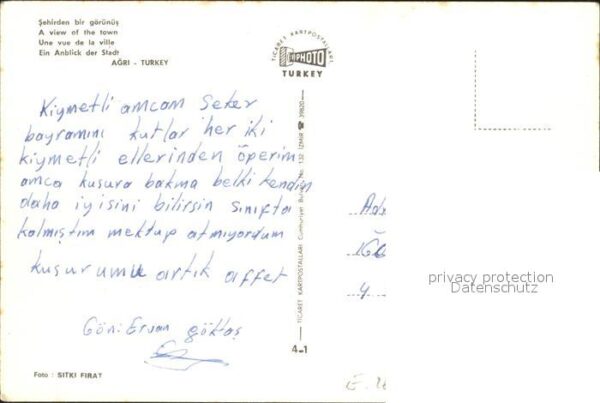 Şehirden bir görünüş
A view of the town
Une vue de la ville
Ein Anblick der Stadt
AĞRI - TURKEY
TİCARET KARTPOSTALLARI
PHOTO
TURKEY
Kıymetli amcam Şeker
bayramını kutlar her iki
kıymetli ellerinden öperim
amca kusura bakma belki kendin
daha iyisini bilirsin sınıfta
kalmıştım mektup atmıyordum
kusurumu artık affet
Gön: Ervan Göktaş
Foto : SITKI FIRAT
TİCARET KARTPOSTALLARI Cumhuriyet Bulvarı No. 132 İZMİR ☎ 39820
4-1
Ad
y
privacy protection
Datenschutz